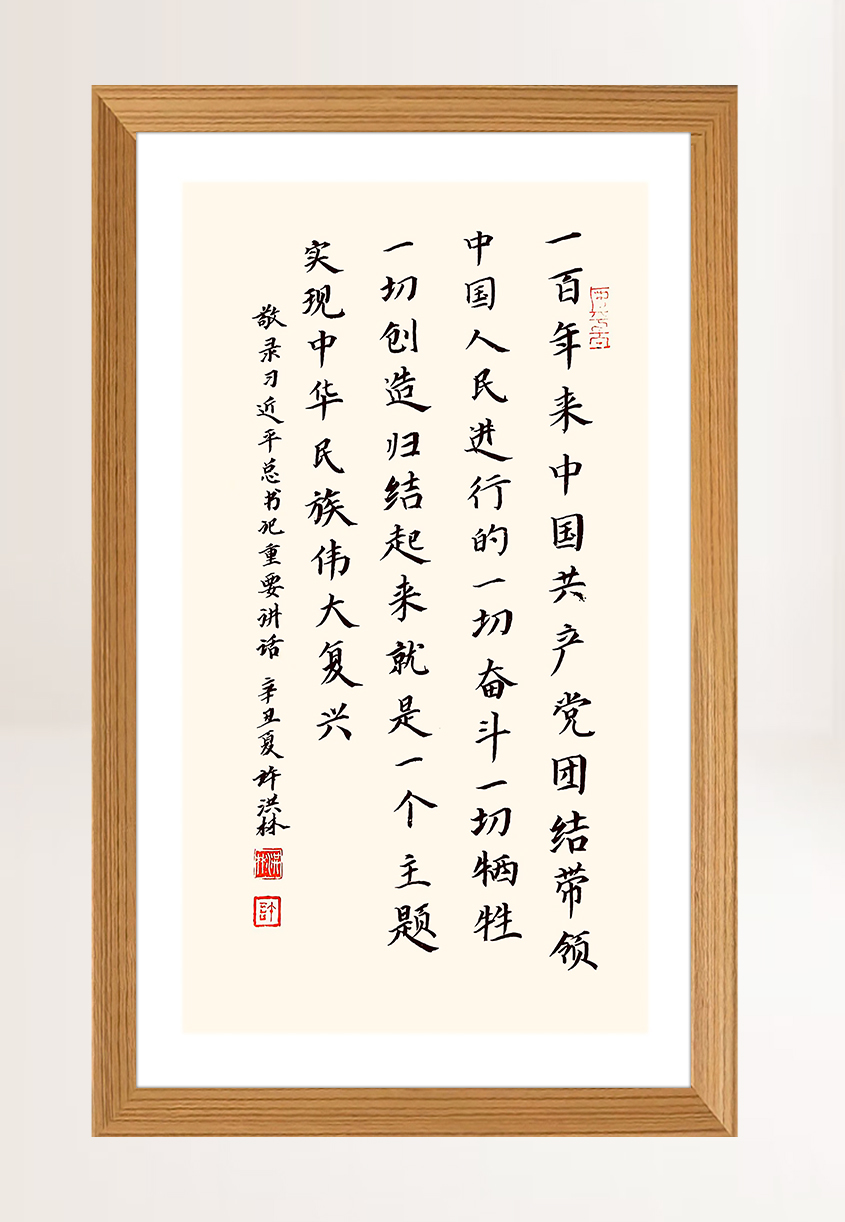 一百年来中国共产党团结带领
中国人民进行的一切奋斗一切牺牲
一切创造归结起来就是一个主题
实现中华民族伟大复兴
敬录习近平总书记重要讲话 辛丑夏许洪林
洪林
許